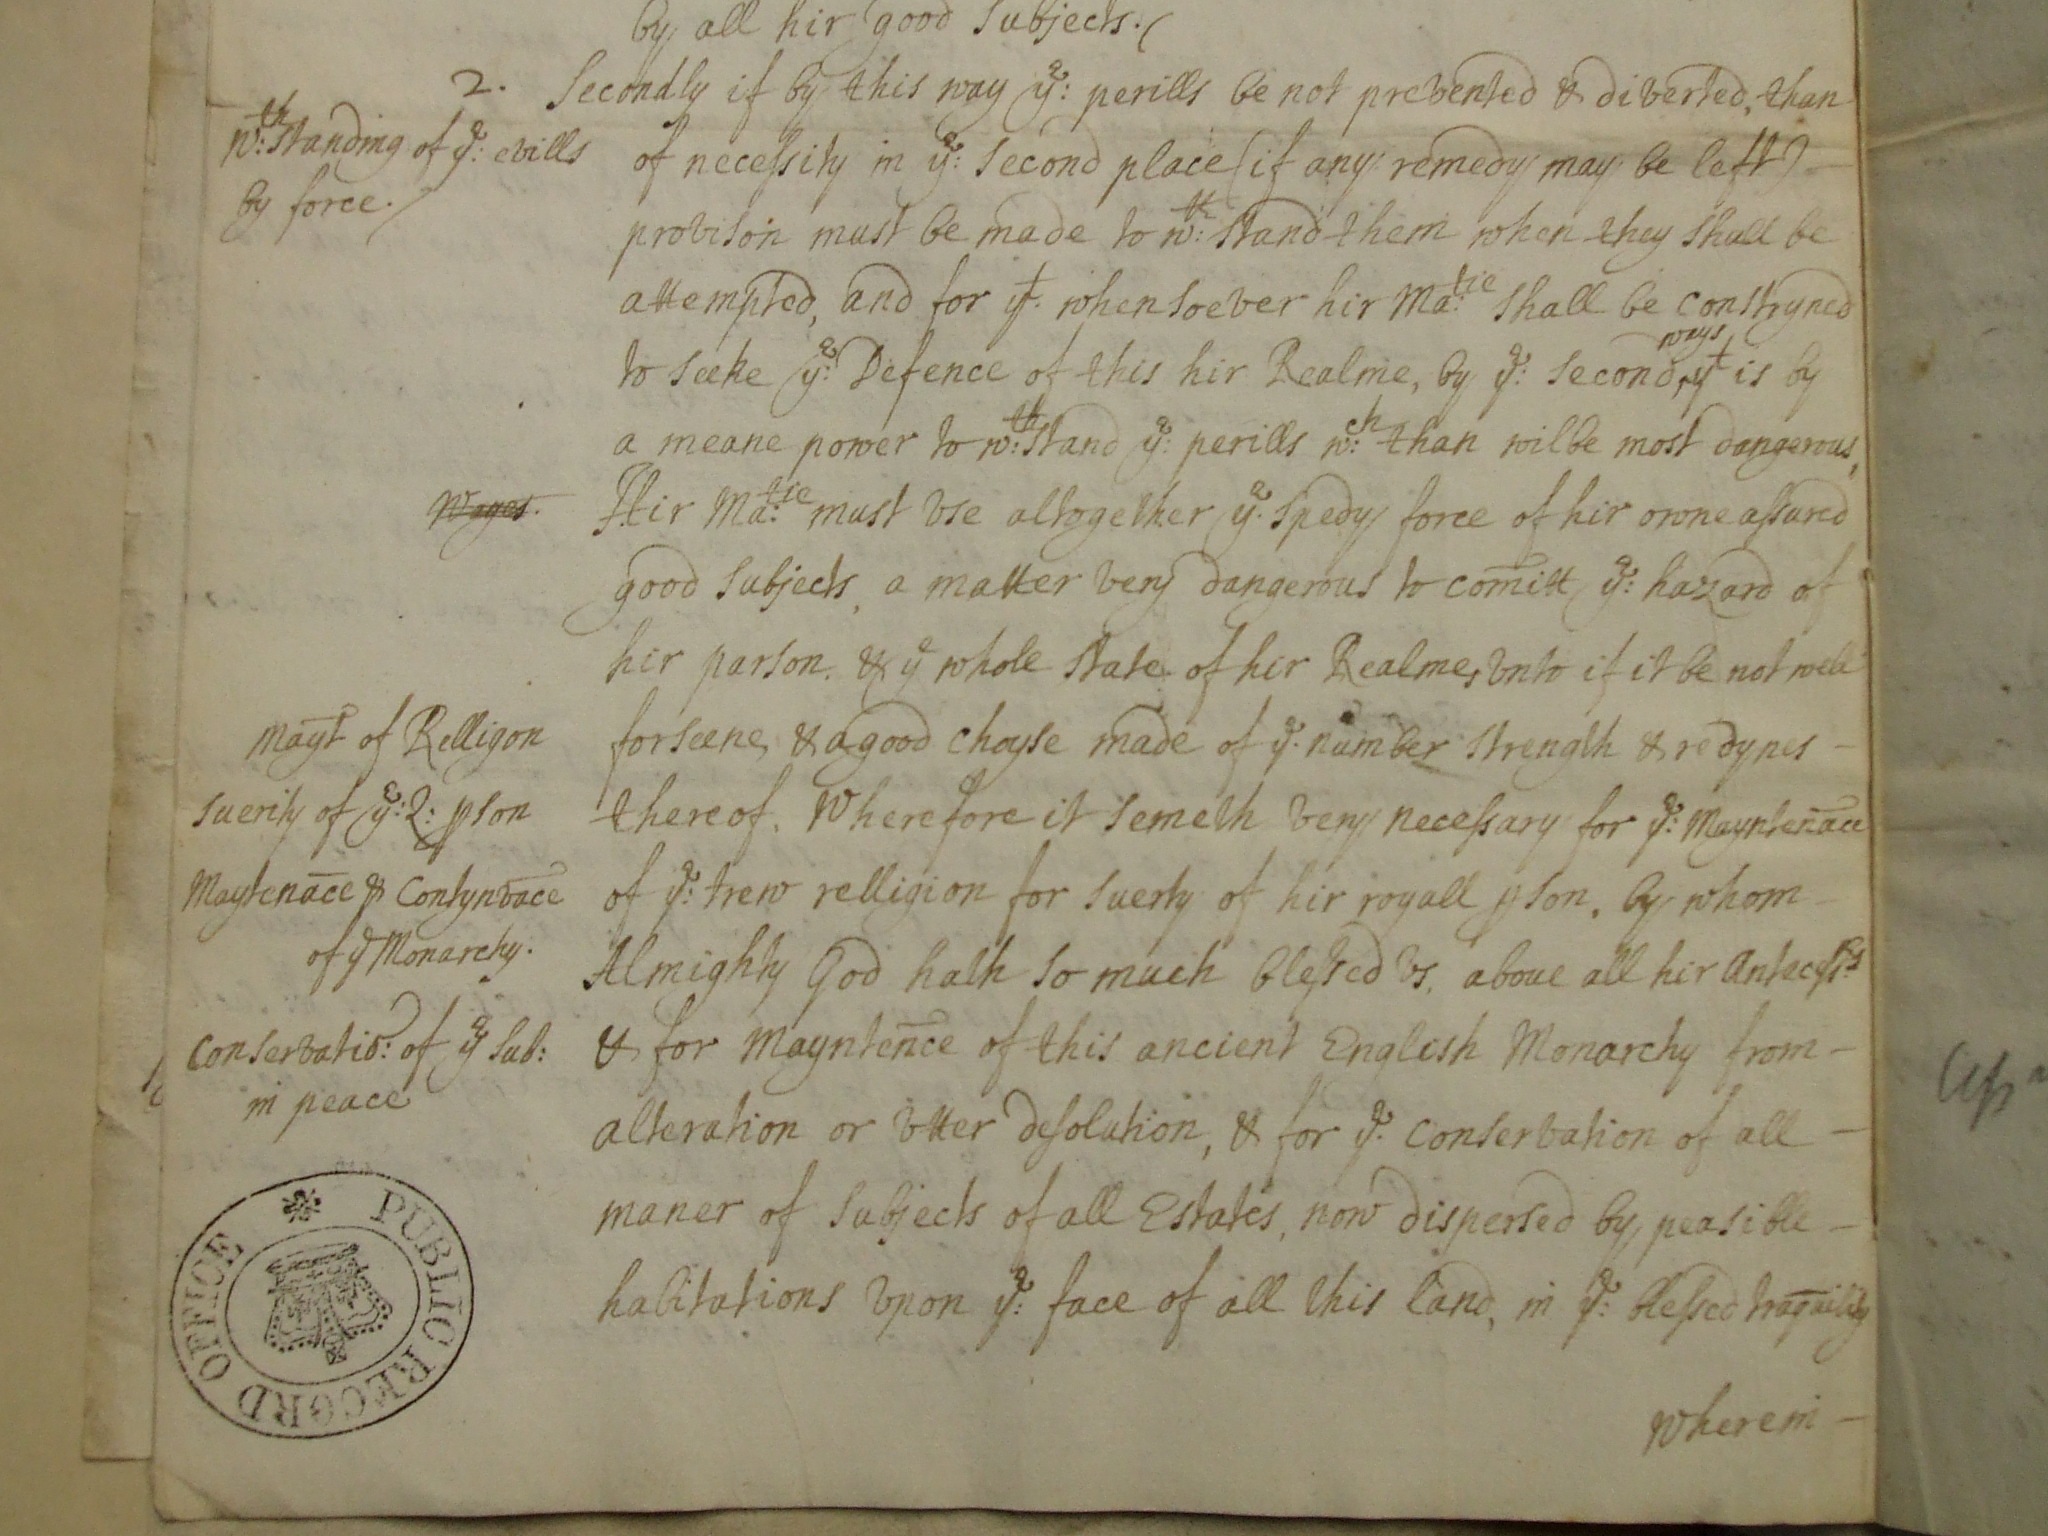 by all hir good Subjects.
2. Secondly if by this way yᵉ: perills be not prevented & diverted, than
wᵗʰ:standing of yᵉ: evills
by force.
of necessity in yᵉ: second place (if any remedy may be left)
provison must be made to wᵗʰ: stand them when they shall be
attempted, and for yᵗ. whensoever hir Maᵗⁱᵉ: shall be constryned
to seeke yᵉ: Defence of this hir Realme, by yᵉ: second ways yᵗ is by
a meane power to wᵗʰ:stand yᵉ: perills wᶜʰ: than wilbe most dangerous,
Wayes.
Hir Maᵗⁱᵉ: must vse altogether yᵉ. spedy force of hir owne assured
good Subjects, a matter very dangerous to com̄itt yᵉ: hazard of
hir parson. & yᵉ whole state of hir Realme, vnto if it be not well
forseene, & a good choyse made of yᵉ. number strength & redynes
thereof. Wherefore it semeth very necessary for yᵉ: Maynten̄ace
of yᵉ: trew relligion for suerty of hir royall pson, by whom
Almighty God hath so much blessed vs. above all hir
& for Maynten̄ce of this ancient English Monarchy from
alteration or vtter desolution, & for yᵉ. conservation of all
maner of Subjects of all Estates, now dispersed by peasible
habitations vpon yᵉ: face of all this land, in yᵉ: blessed traq̄uility
Mayt̄ of Relligon
suerity of yᵉ: 2: pson
Maytenāce & Contynvāce
of yᵉ Monarchy.
Conservatiō: of yᵉ Sub:
in peace
Wherein
PUBLIC RECORD OFFICE